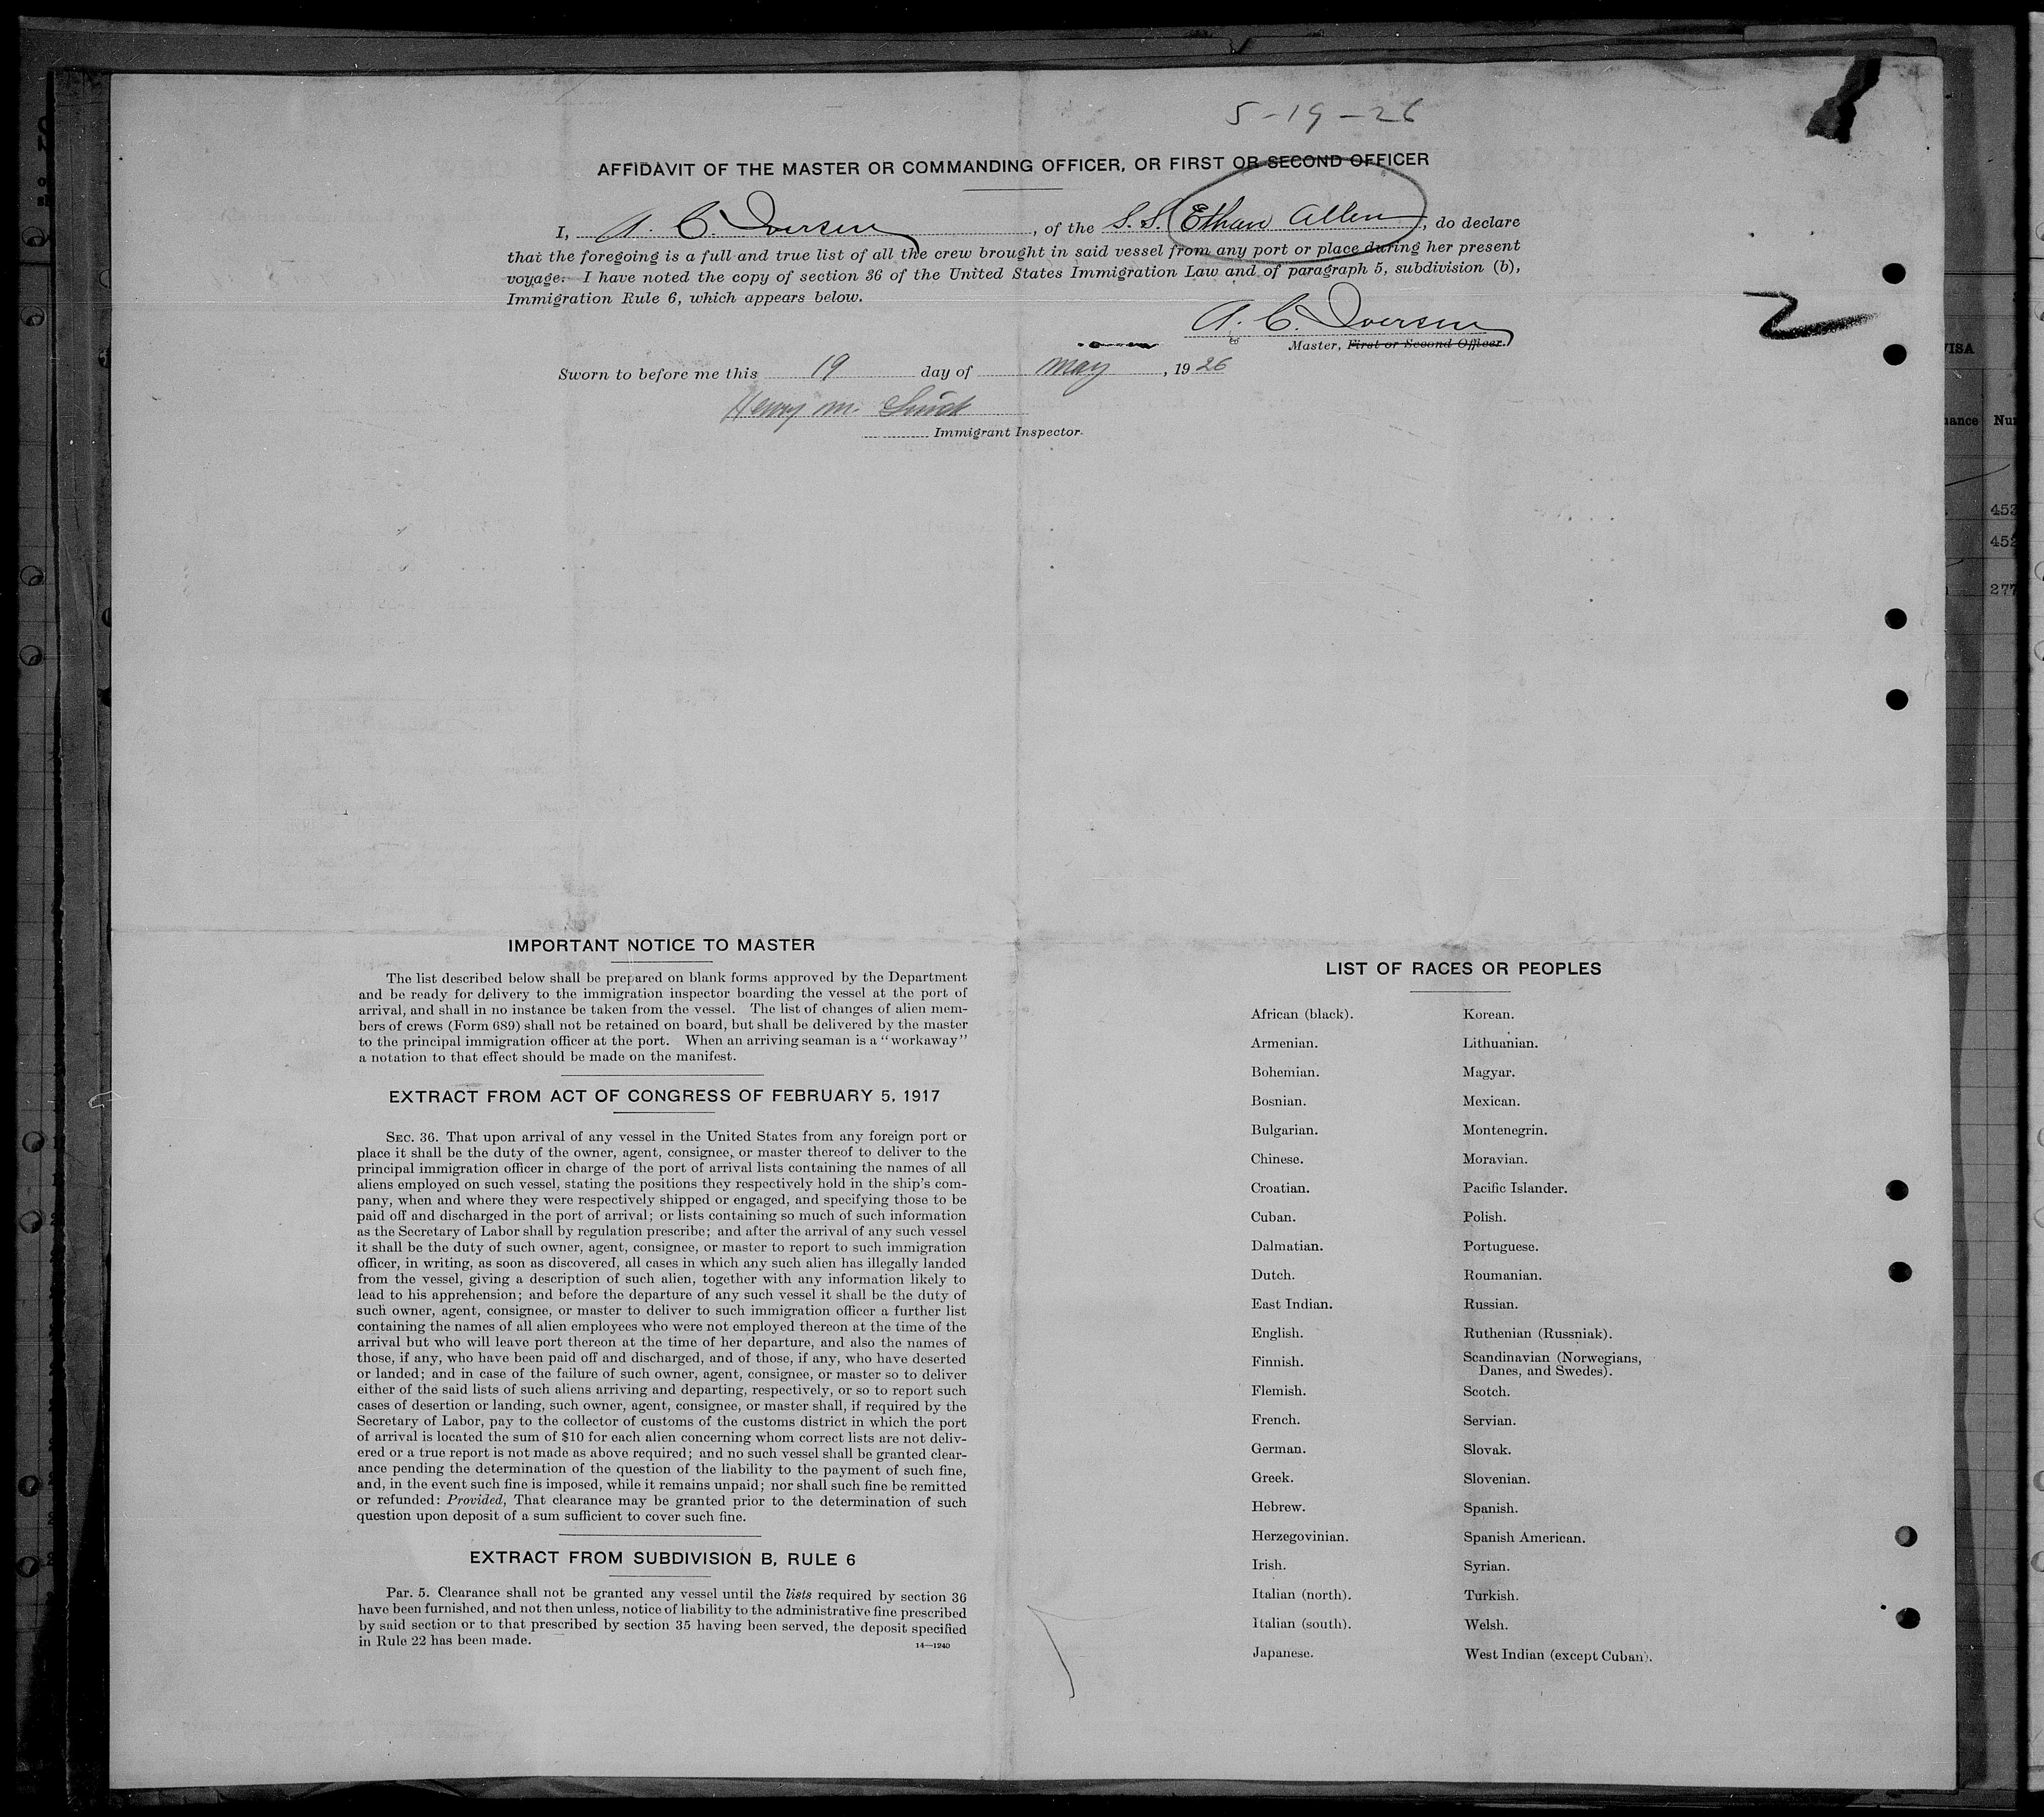 5-19-26
AFFIDAVIT OF THE MASTER OR COMMANDING OFFICER, OR FIRST OR SECOND OFFICER
I, A. C. Iversen, of the S. S. Ethan Allen, do declare
that the foregoing is a full and true list of all the crew brought in said vessel from any port or place during her present
voyage. I have noted the copy of section 36 of the United States Immigration Law and of paragraph 5, subdivision (b),
Immigration Rule 6, which appears below.
A. C. Iversen
Master, First or Second Officer.
2
Sworn to before me this 19 day of May, 1926
Henry M.
Immigrant Inspector.
VISA
Nu
453
452
277
IMPORTANT NOTICE TO MASTER
The list described below shall be prepared on blank forms approved by the Department
and be ready for delivery to the immigration inspector boarding the vessel at the port of
arrival, and shall in no instance be taken from the vessel. The list of changes of alien mem-
bers of crews (Form 689) shall not be retained on board, but shall be delivered by the master
to the principal immigration officer at the port. When an arriving seaman is a "workaway"
a notation to that effect should be made on the manifest.
EXTRACT FROM ACT OF CONGRESS OF FEBRUARY 5, 1917
SEC. 36. That upon arrival of any vessel in the United States from any foreign port or
place it shall be the duty of the owner, agent, consignee, or master thereof to deliver to the
principal immigration officer in charge of the port of arrival lists containing the names of all
aliens employed on such vessel, stating the positions they respectively hold in the ship's com-
pany, when and where they were respectively shipped or engaged, and specifying those to be
paid off and discharged in the port of arrival; or lists containing so much of such information
as the Secretary of Labor shall by regulation prescribe; and after the arrival of any such vessel
it shall be the duty of such owner, agent, consignee, or master to report to such immigration
officer, in writing, as soon as discovered, all cases in which any such alien has illegally landed
from the vessel, giving a description of such alien, together with any information likely to
lead to his apprehension; and before the departure of any such vessel it shall be the duty of
such owner, agent, consignee, or master to deliver to such immigration officer a further list
containing the names of all alien employees who were not employed thereon at the time of the
arrival but who will leave port thereon at the time of her departure, and also the names of
those, if any, who have been paid off and discharged, and of those, if any, who have deserted
or landed; and in case of the failure of such owner, agent, consignee, or master so to deliver
either of the said lists of such aliens arriving and departing, respectively, or so to report such
cases of desertion or landing, such owner, agent, consignee, or master shall, if required by the
Secretary of Labor, pay to the collector of customs of the customs district in which the port
of arrival is located the sum of $10 for each alien concerning whom correct lists are not deliv-
ered or a true report is not made as above required; and no such vessel shall be granted clear-
ance pending the determination of the question of the liability to the payment of such fine,
and, in the event such fine is imposed, while it remains unpaid; nor shall such fine be remitted
or refunded: Provided, That clearance may be granted prior to the determination of such
question upon deposit of a sum sufficient to cover such fine.
EXTRACT FROM SUBDIVISION B, RULE 6
Par. 5. Clearance shall not be granted any vessel until the lists required by section 36
have been furnished, and not then unless, notice of liability to the administrative fine prescribed
by said section or to that prescribed by section 35 having been served, the deposit specified
in Rule 22 has been made.
14—1240
LIST OF RACES OR PEOPLES
African (black).
Armenian.
Bohemian.
Bosnian.
Bulgarian.
Chinese.
Croatian.
Cuban.
Dalmatian.
Dutch.
East Indian.
English.
Finnish.
Flemish.
French.
German.
Greek.
Hebrew.
Herzegovinian.
Irish.
Italian (north).
Italian (south).
Japanese.
Korean.
Lithuanian.
Magyar.
Mexican.
Montenegrin.
Moravian.
Pacific Islander.
Polish.
Portuguese.
Roumanian.
Russian.
Ruthenian (Russniak).
Scandinavian (Norwegians,
Danes, and Swedes).
Scotch.
Servian.
Slovak.
Slovenian.
Spanish.
Spanish American.
Syrian.
Turkish.
Welsh.
West Indian (except Cuban).